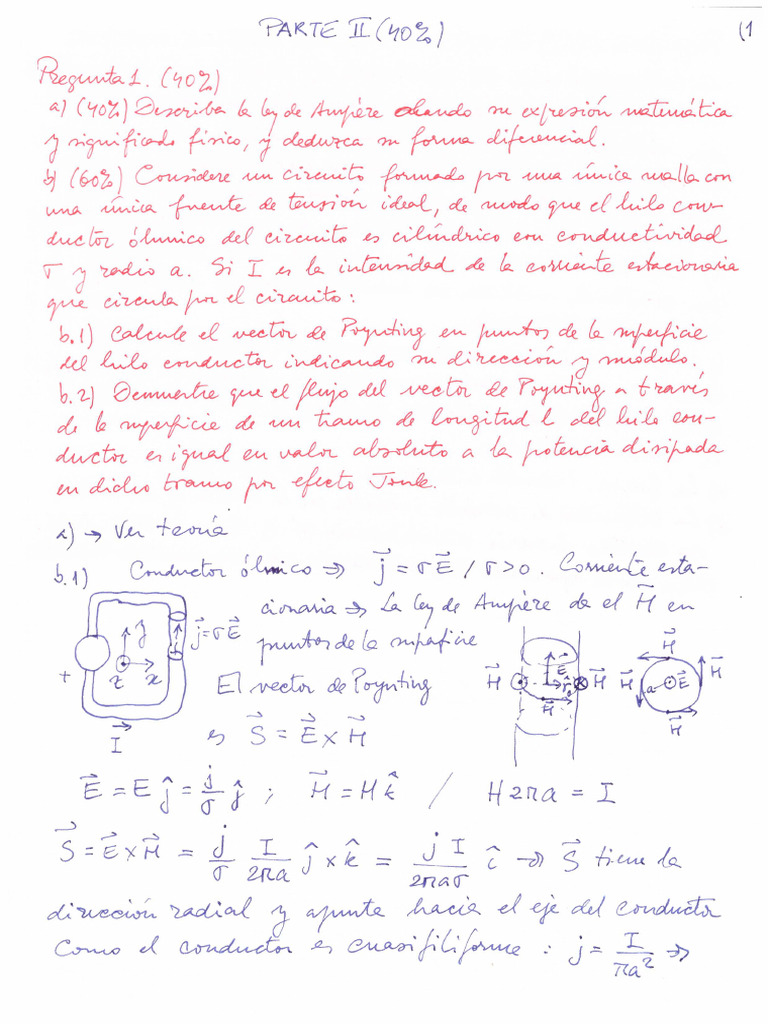 PARTE II (40%) (1
Pregunta 1. (40%)
a) (40%) Describa la ley de Ampère dando su expresión matemática
y significado físico, y deduzca su forma diferencial.
b) (60%) Considere un circuito formado por una única malla con
una única fuente de tensión ideal, de modo que el hilo con-
ductor óhmico del circuito es cilíndrico con conductividad
σ y radio a. Si I es la intensidad de la corriente estacionaria
que circula por el circuito:
b.1) Calcule el vector de Poynting en puntos de la superficie
del hilo conductor indicando su dirección y módulo.
b.2) Demuestre que el flujo del vector de Poynting a través
de la superficie de un tramo de longitud l del hilo con-
ductor es igual en valor absoluto a la potencia disipada
en dicho tramo por efecto Joule.
a) → Ver teoría
b.1) Conductor óhmico ⇒ j⃗ = σE⃗ / σ>0. Corriente esta-
cionaria ⇒ La ley de Ampère da el H⃗ en
puntos de la superficie
j⃗=σE⃗
y
z x
+
I⃗
El vector de Poynting
es S⃗ = E⃗ × H⃗
H⃗ E⃗ H⃗ H⃗
H⃗ H⃗ a E⃗ H⃗ H⃗
E⃗ = E ĵ = j/σ ĵ ; H⃗ = H k̂ / H2πa = I
S⃗ = E⃗×H⃗ = j/σ I/2πa ĵ × k̂ = jI/2πaσ î → S⃗ tiene la
dirección radial y apunta hacia el eje del conductor
Como el conductor es cuasifiliforme : j = I/πa² ⇒